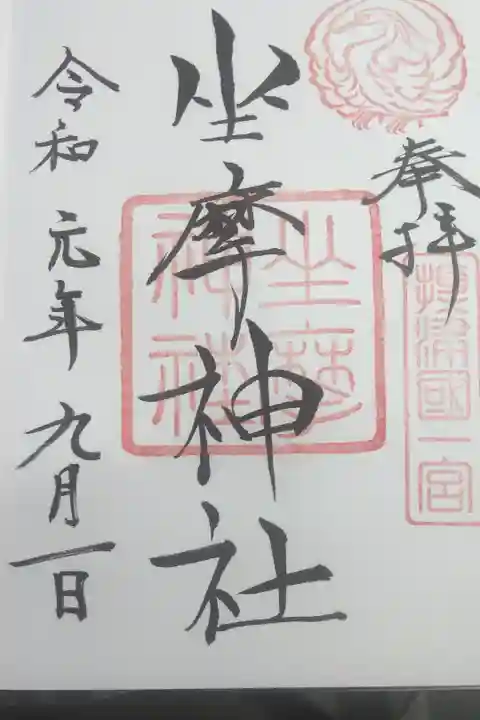 奉拝
攝津國一宮
坐摩神社
坐摩
神社
令和元年九月一日